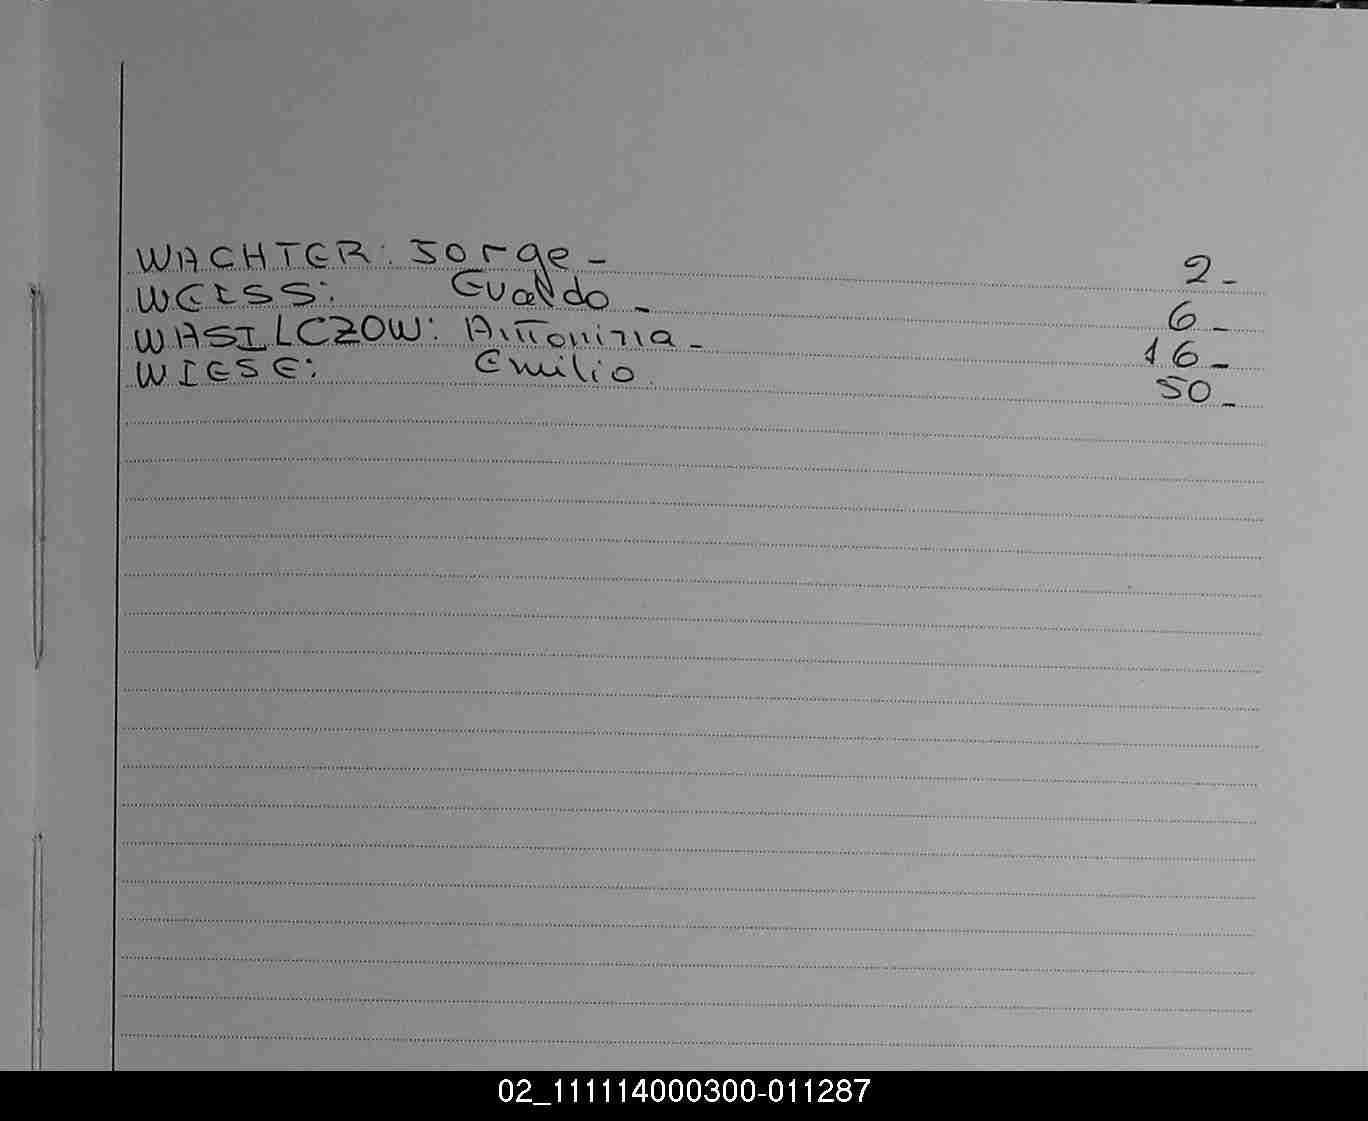 WACHTER: Jorge - 2 -
WEISS: Gualdo - 6 -
WASILCZOW: Antonina - 16 -
WIESE: Emilio 50 -
02_111114000300-011287